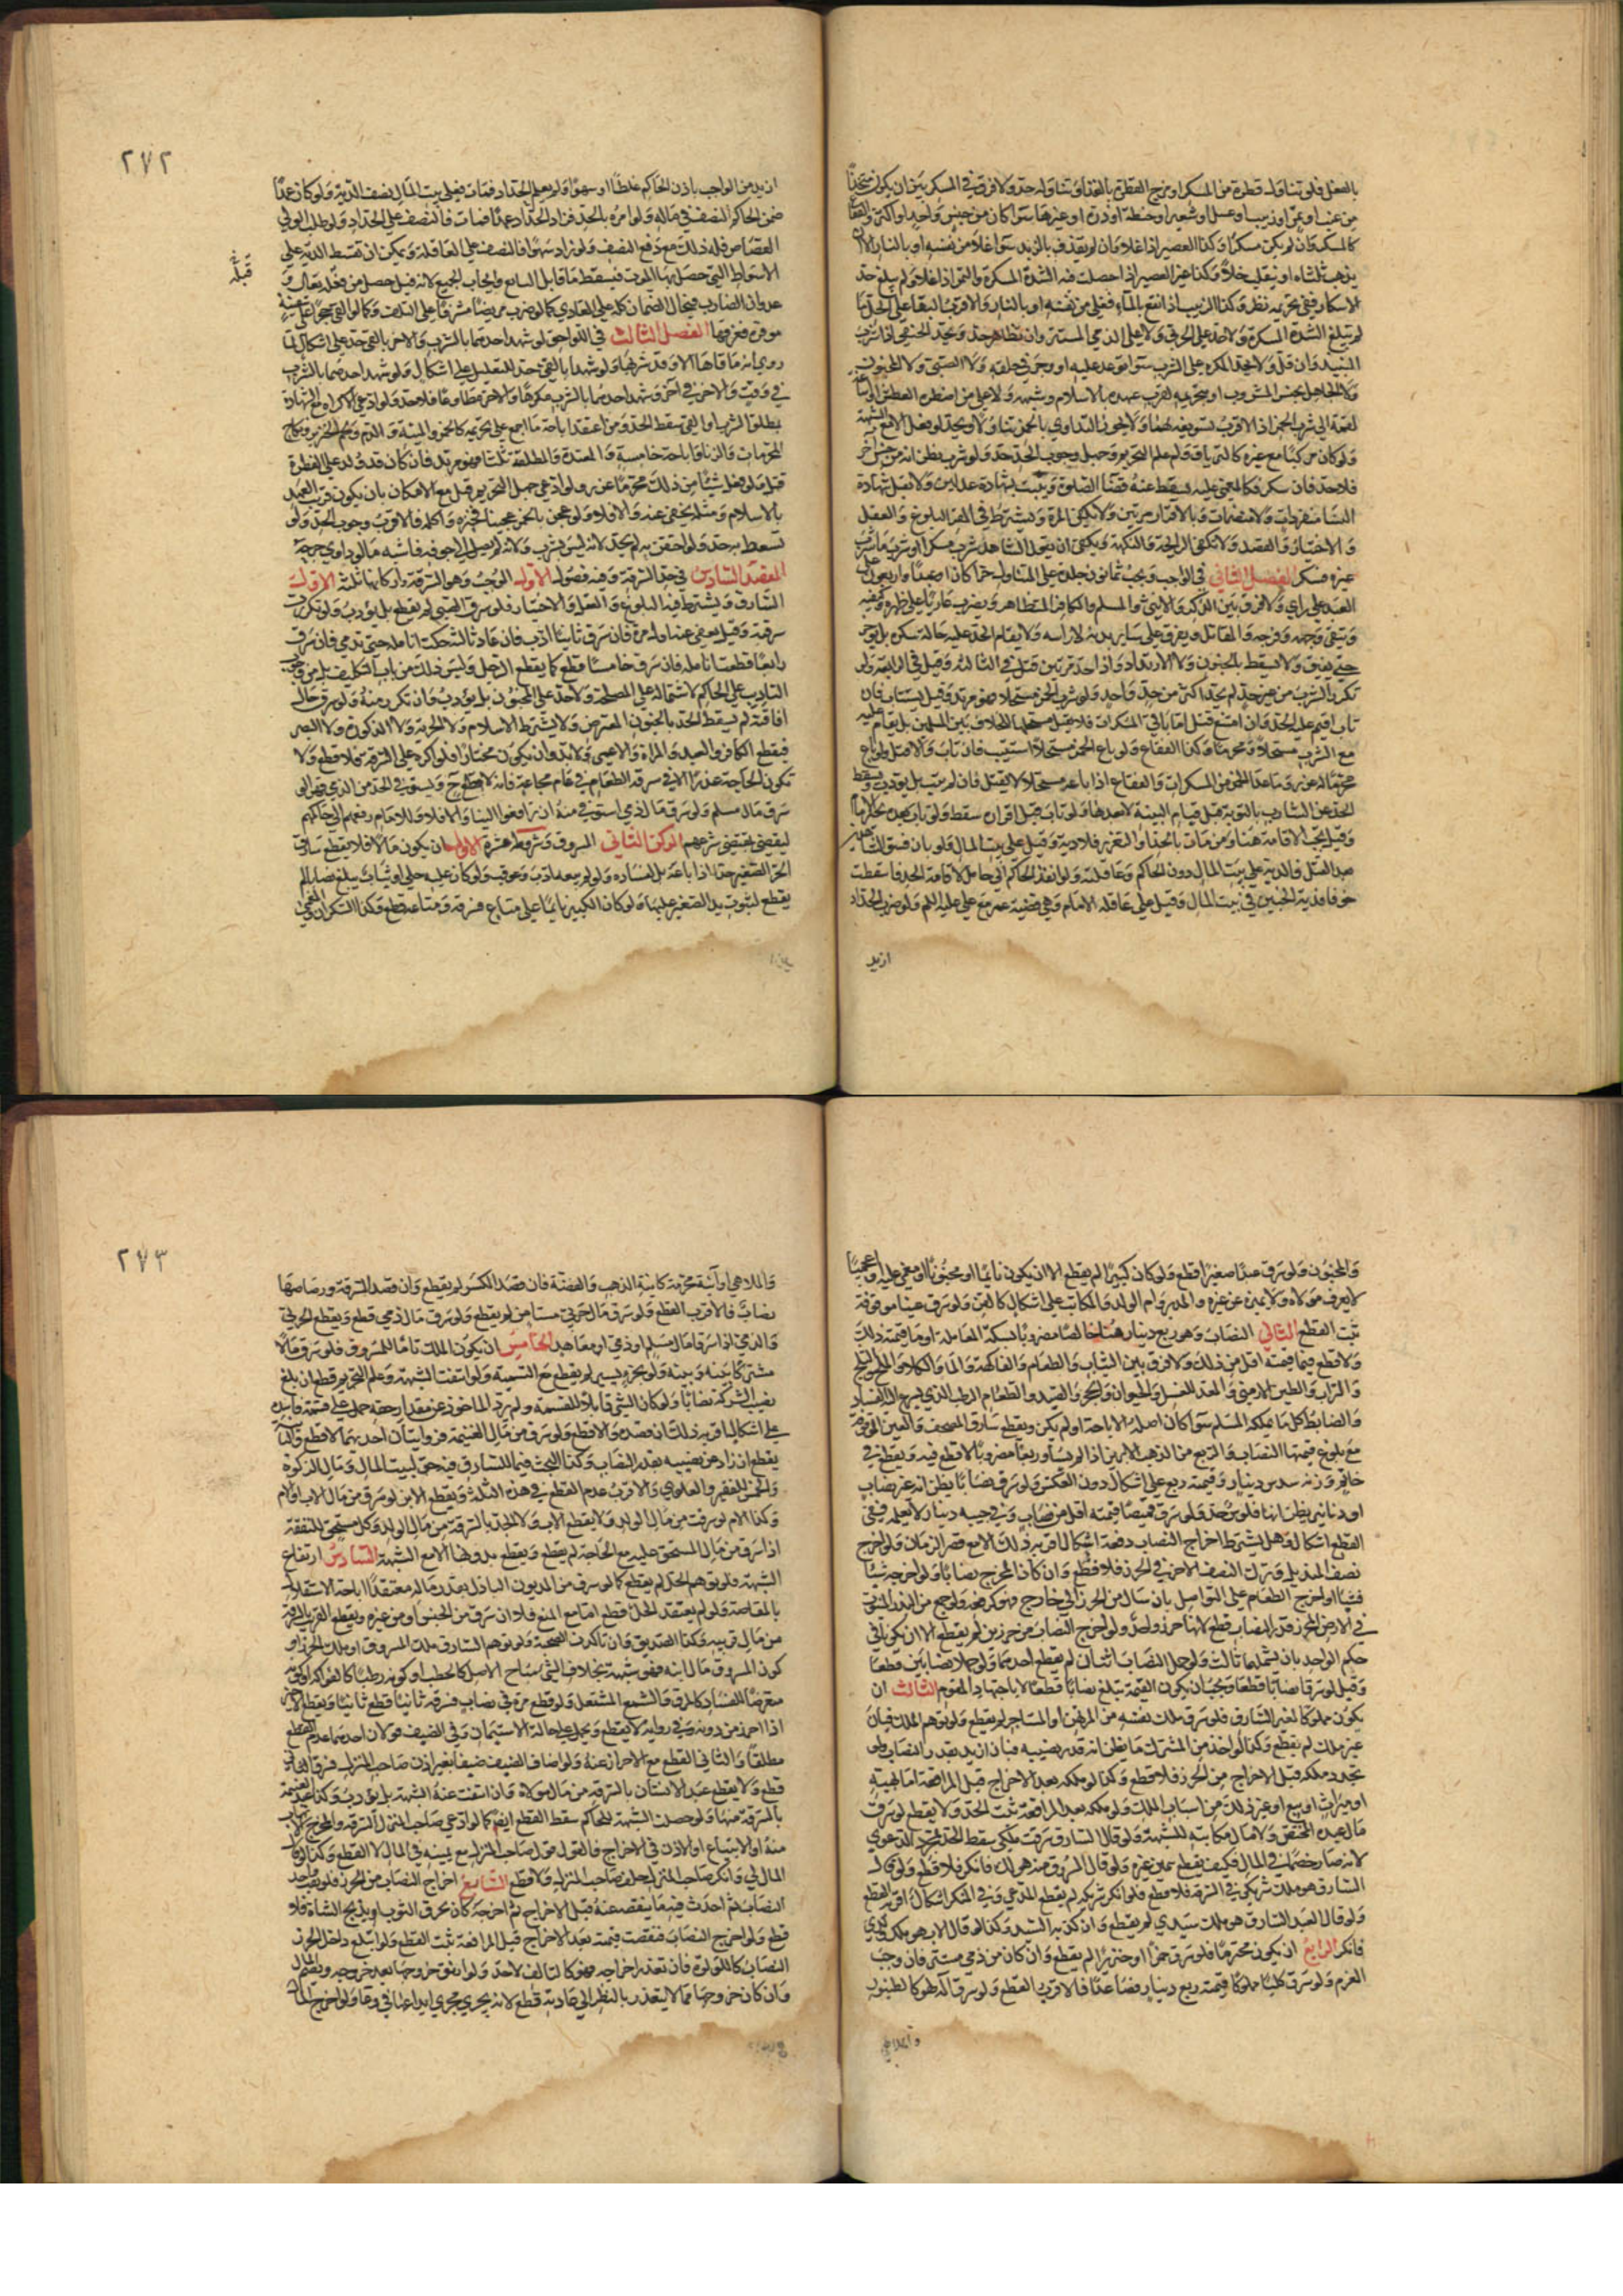 بالفعل فلو تناول قطرة من المسكر او مزج القطرة بالغذاء وتناوله حد ولا فرق في المسكر بين ان يكون متخذا
من عنب او تمر او زبيب او عسل او شعير او حنطة او ذرة او غيرها سواء كان من جنس واحد او اكثر والفقاع
كالمسكر وان لم يكن مسكرا وكذا العصير اذا غلا وان لم يقذف بالزبد سواء غلا من نفسه او بالنار الا ان
يذهب ثلثاه او ينقلب خلا وكذا غير العصير اذا حصلت فيه الشدة المسكرة والتمر اذا غلا ولم يبلغ حد
الاسكار ففي تحريمه نظر وكذا الزبيب اذا نقع بالماء فغلى من نفسه او بالنار والاقرب البقاء على الحل ما
لم يبلغ الشدة المسكرة ولا حد على الحربي ولا على الذمي المستتر وان تظاهر حد ويحد الحنفي اذا شرب
النبيذ وان قل ولا يحد المكره على الشرب سواء توعد عليه او وجر في حلقه ولا الصبي ولا المجنون
ولا الجاهل بجنس المشروب او بتحريمه لقرب عهده بالاسلام وشبهه ولا على من اضطره العطش او اساغة
لقمة الى شرب الخمر اذ الاقرب تسويغه لهما ولا يجوز التداوي بالخمر تناولا ويحد لو فعل الا مع الشبهة
ولو كان مركبا مع غيره كالترياق ولو علم التحريم وجهل وجوب الحد حد ولو شرب بظن انه من جنس اخر
فلا حد فان سكر فكالمغمى عليه يسقط عنه قضاء الصلوة ويثبت بشهادة عدلين ولا تقبل شهادة
النساء منفردات ولا منضمات وبالاقرار مرتين ولا تكفي المرة ويشترط في المقر البلوغ والعقل
والاختيار والقصد ولا تكفي الرايحة والنكهة ويكفي ان يقول الشاهد شرب مسكرا او شرب ما شرب
غيره فسكر الفصل الثاني في الواجب ويجب ثمانون جلدة على المتناول حرا كان او عبدا واربعون على
العبد على رأي ولا فرق بين الذكر والانثى والمسلم والكافر المتظاهر ويضرب عاريا على ظهره وكتفيه
ويتقى وجهه وفرجه والمقاتل ويفرق على ساير بدنه لا راسه ولا يقام الحد عليه حالة سكره بل يؤخر
حتى يفيق ولا يسقط بالجنون ولا الارتداد واذا حد مرتين قتل في الثالثة وقيل في الرابعة ولو
تكرر الشرب من غير حد لم يحد اكثر من حد واحد ولو شرب الخمر مستحلا فهو مرتد وقيل يستتاب فان
تاب اقيم عليه الحد وان امتنع قتل اما باقي المسكرات فلا يقتل مستحلها للخلاف بين المسلمين بل يقام عليه
مع الشرب مستحلا ومحرما وكذا الفقاع ولو باع الخمر مستحلا استتيب فان تاب والا قتل ولو باع
محرما له عزر وما عدا الخمر من المسكرات والفقاع اذا باعه مستحلا لا يقتل فان لم يتب بل يؤدب ويسقط
الحد عن الشارب بالتوبة قبل قيام البينة لا بعدها ولو تاب قبل اقراره سقط ولو تاب بعده تخير الامام
وقيل يجب الاقامة هنا ومن مات بالحد او التعزير فلا دية وقيل على بيت المال ولو بان فسق الشاهدين
بعد القتل فالدية على بيت المال دون الحاكم وعاقلته ولو انفذ الحاكم الى حامل لاقامة الحد فاسقطت
خوفا فدية الجنين في بيت المال وقيل على عاقلة الامام وهي قضية عمر مع علي عليه السلم ولو ضرب الحداد
ازيد
٢٧٢
ازيد من الواجب باذن الحاكم غلطا او سهوا ولم يعلم الحداد فمات فعلى بيت المال نصف الدية ولو كان عمدا
ضمن الحاكم النصف في ماله ولو امره بالحد فزاد الحداد عمدا فمات فالنصف على الحداد ولو طلب الولي
القصاص فله ذلك مع دفع النصف ولو زاد سهوا فالنصف على العاقلة ويمكن ان تقسط الدية على
الاسواط التي حصل بها الموت فيسقط ما قابل السايغ وايجاب الجميع لانه قتل حصل من فعله تعالى و
عدوان الضارب فيحال الضمان كله على العادي كما لو ضرب مريضا مشرفا على التلف وكما لو القى حجرا على سفينة
موقرة فغرقها الفصل الثالث في اللواحق لو شهد احدهما بالشرب والاخر بالقيء حد على اشكال لما
روي انه ما قاءها الا وقد شربها ولو شهدا بالقيء حد للتعليل على اشكال ولو شهد احدهما بالشرب
في وقت والاخر في آخر وشهد احدهما بالشرب مكرها والاخر مطاوعا فلا حد ولو ادعى الاكراه مع الشهادة
بمطلق الشرب او القيء سقط الحد ومن اعتقد اباحة ما اجمع على تحريمه كالخمر والميتة والدم ولحم الخنزير ونكاح
المحرمات والزنا واباحة خامسة والمعتدة والمطلقة ثلثا فهو مرتد فان كان قد ولد على الفطرة
قتل ولو فعل شيئا من ذلك محرما عزر ولو ادعى جهل التحريم قبل مع الامكان بان يكون قريب العهد
بالاسلام ومثله يخفى عنه والا فلا ولو عجن بالخمر عجينا فخبزه واكله فالاقرب وجوب الحد ولو
تسعط به حد ولو احتقن به لم يحد لانه ليس بشرب ولانه لم يصل الى جوفه فاشبه ما لو داوى جرحه
المقصد السادس في حد السرقة وفيه فصول الاول الموجب وهو السرقة واركانها ثلثة الاول
السارق ويشترط فيه البلوغ والعقل والاختيار فلو سرق الصبي لم يقطع بل يؤدب ولو تكررت
سرقته وقيل يعفى عنه اول مرة فان سرق ثانيا ادب فان عاد ثالثا حكت انامله حتى تدمى فان سرق
رابعا قطعت انامله فان سرق خامسا قطع كما يقطع الرجل وليس ذلك من باب التكليف بل من باب وجوب
التاديب على الحاكم لاشتماله على المصلحة ولا حد على المجنون بل يؤدب وان تكرر منه ولو سرق حال
افاقته لم يسقط الحد بالجنون المعترض ولا يشترط الاسلام ولا الحرية ولا الذكورة ولا البصر
فيقطع الكافر والعبد والمراة والاعمى ولا بد وان يكون مختارا فلو اكره على السرقة فلا قطع ولا
تكون الحاجة عذرا الا في سرقة الطعام في عام مجاعة فانه لا قطع ح ويستوفى الحد من الذمي قهرا لو
سرق مال مسلم ولو سرق مال ذمي استوفي منه ان ترافعوا الينا والا فلا وللامام رفعهم الى حاكمهم
ليقضي بمقتضى شرعهم الركن الثاني المسروق وشروطه عشرة الاول ان يكون مالا فلا يقطع سارق
الحر الصغير حدا اذا باعه بل لفساده ولو لم يبعه ادب وعوقب ولو كان عليه حلي او ثياب يبلغ نصابا لم
يقطع لثبوت يد الصغير عليها ولو كان الكبير نايما على متاع فسرقه ومتاعه قطع وكذا السكران والمغمى
والمجنون ولو سرق عبدا صغيرا قطع ولو كان كبيرا لم يقطع الا ان يكون نايما او مجنونا او مغمى عليه او اعجميا
لا يعرف مولاه ولا يميزه عن غيره والمدبر وام الولد والمكاتب على اشكال كالقن ولو سرق عينا موقوفة
ثبت القطع الثاني النصاب وهو ربع دينار ذهبا خالصا مضروبا بسكة المعاملة او ما قيمته ذلك
ولا قطع فيما قيمته اقل من ذلك ولا فرق بين الثياب والطعام والفاكهة والماء والكلاء والملح والثلج
والتراب والطين الارمني والمعد للغسل والحيوان والحجر والصيد والطعام الرطب الذي يسرع اليه الفساد
والضابط كل ما يملكه المسلم سواء كان اصله الاباحة او لم يكن ويقطع سارق المصحف والعين الموقوفة
مع بلوغ قيمتها النصاب والربع من الذهب الابريز اذا لم يساو ربعا مضروبا لا قطع فيه ويقطع في
خاتم وزنه سدس دينار وقيمته ربع على اشكال دون العكس ولو سرق نصابا يظن انه غير نصاب
او دنانير يظن انها فلوس حد ولو سرق قميصا قيمته اقل من نصاب وفي جيبه دينار لا يعلمه ففي
القطع اشكال وهل يشترط اخراج النصاب دفعة اشكال اقربه ذلك الا مع قصر الزمان ولو اخرج
نصف المنديل وترك النصف الاخر في الحرز فلا قطع وان كان المخرج نصابا ولو اخرجه شيئا
فشيئا او اخرج الطعام على التواصل بان سال من الحرز الى خارج فهو كدفعة ولو جمع من البذر المبثوث
في الارض المحرز قدر النصاب قطع لانها حرز واحد ولو اخرج النصاب من حرزين لم يقطع الا ان يكونا في
حكم الواحد بان يشملهما ثالث ولو حمل النصاب اثنان لم يقطع احدهما ولو حملا نصابين قطعا
وقيل لو سرقا نصابا قطعا ويجب ان يكون القيمة تبلغ نصابا قطعا لا باجتهاد المقوم الثالث ان
يكون مملوكا لغير السارق فلو سرق ملك نفسه من المرتهن او المستاجر لم يقطع ولو توهم الملك فبان
غير ملك لم يقطع وكذا لو اخذ من المشترك ما يظن انه قدر نصيبه فبان ازيد بقدر النصاب ولو
تجدد ملكه قبل الاخراج من الحرز فلا قطع وكذا لو ملكه بعد الاخراج قبل المرافعة اما بهبة
او ميراث او بيع او غير ذلك من اسباب الملك ولو ملكه بعد المرافعة ثبت الحد ولا يقطع لو سرق
مال عبده المختص ولا مال مكاتبه للشبهة ولو قال السارق سرقت ملكي سقط الحد بمجرد الدعوى
لانه صار خصما في المال فكيف يقطع بيمين غيره ولو قال المسروق منه هو لك فانكر فلا قطع ولو قال
السارق هو ملك شريكي في السرقة فلا قطع فلو انكر شريكه لم يقطع المدعي وفي المنكر اشكال اقربه القطع
ولو قال العبد السارق هو ملك سيدي لم يقطع وان كذبه السيد وكذا لو قال الاب هو ملك ولدي
فانكر الرابع ان يكون محترما فلو سرق خمرا او خنزيرا لم يقطع وان كان من ذمي مستتر فان وجب
الغرم ولو سرق كلبا مملوكا قيمته ربع دينار فصاعدا فالاقرب القطع ولو سرق آلة لهو كالطنبور
والملاهي
٢٧٣
والملاهي او آنية محرمة كانية الذهب والفضة فان قصد الكسر لم يقطع وان قصد السرقة ورضاضها
نصاب فالاقرب القطع ولو سرق مال حربي مستامن لم يقطع ولو سرق مال ذمي قطع ويقطع الحربي
والذمي اذا سرقا مال مسلم او ذمي او معاهد الخامس ان يكون الملك تاما للمسروق فلو سرق مالا
مشتركا بينه وبينه ولو بجزء يسير لم يقطع مع الشبهة ولو انتفت الشبهة وعلم التحريم قطع ان بلغ
نصيب الشركة نصابا ولو كان الشيء قابلا للقسمة ولم يزد الماخوذ عن مقدار حقه حمل على قسمة فاسدة
على اشكال اقربه ذلك ان قصده والا قطع ولو سرق من مال الغنيمة فروايتان احديهما لا قطع والثانية
يقطع ان زاد عن نصيبه بقدر النصاب وكذا البحث فيما للسارق فيه حق كبيت المال ومال الزكوة
والخمس للفقير والعلوي والاقرب عدم القطع في هذه الثلثة ويقطع الابن لو سرق من مال الاب او الام
وكذا الام لو سرقت من مال الولد ولا يقطع الاب ولا الجد بالسرقة من مال الولد وكل مستحق للنفقة
اذا سرق من مال المستحق عليه مع الحاجة لم يقطع ويقطع بدونها الا مع الشبهة السادس ارتفاع
الشبهة فلو توهم الحل لم يقطع كما لو سرق من المديون الباذل بقدر ماله معتقدا اباحة الاستقلال
بالمقاصة ولو لم يعتقد الحل قطع اما مع المنع فلا ان سرق من الجنس او من غيره ويقطع القريب بالسرقة
من مال قريبه وكذا الصديق وان تاكدت الصحبة ولو توهم السارق ملك المسروق او ملك الحرز او
كون المسروق مال ابنه فهو شبهة بخلاف الشيء مباح الاصل كالحطب او كونه رطبا كالفواكه او كونه
متعرضا للفساد كالمرق والشمع المشتعل ولو قطع مرة في نصاب فسرقه ثانيا قطع ثانيا ويقطع الاجير
اذا احرز من دونه وفي رواية لا يقطع ويحمل على حالة الاستيمان وفي الضيف قولان احدهما عدم القطع
مطلقا والثاني القطع مع الاحراز عنه ولو اضاف الضيف ضيفا بغير اذن صاحب المنزل فسرق الثاني
قطع ولا يقطع عبد الانسان بالسرقة من مال مولاه وان انتفت عنه الشبهة بل يؤدب وكذا عبد الغنيمة
بالسرقة منها ولو حصلت الشبهة للحاكم سقط القطع ايضا كما لو ادعى صاحب المنزل السرقة والمخرج الاتهاب
منه او الابتياع او الاذن في الاخراج فالقول قول صاحب المنزل مع يمينه في المال لا القطع وكذا لو قال
المال لي وانكر صاحب المنزل حلف صاحب المنزل ولا قطع السابع اخراج النصاب من الحرز فلو نقب واخذ
النصاب ثم احدث فيه ما ينقصه عنه قبل الاخراج ثم اخرجه كان يحرق الثوب او يذبح الشاة فلا
قطع ولو اخرج النصاب فنقصت قيمته بعد الاخراج قبل المرافعة ثبت القطع ولو ابتلع داخل الحرز
النصاب كاللؤلؤة فان تعذر اخراجه فهو كالتالف لا حد ولو اتفق خروجها بعد خروجه ويضمن المال
وان كان خروجها مما لا يتعذر بالنظر الى عادته قطع لانه يجري مجرى ايداعها في وعاء ولو اخرج المال